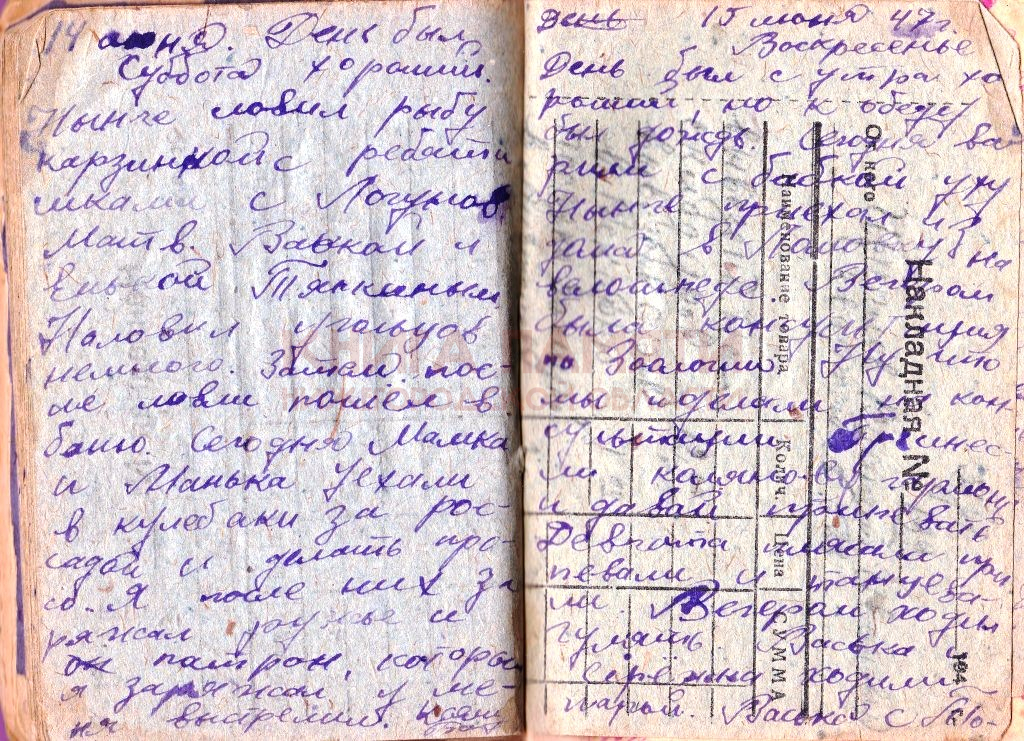 14 июня. День был
Суббота хороший.
Нынче ловил рыбу
карзинкой с ребяти
шками с Логунов
Матв. Васькой и
Тяпкиным
Наловил угольцов
немного. Затем пос-
ле ловли пошёл в
баню. Сегодня Мамка
и Манька уехали
в кулебаки за рос-
садой и делать про-
со. Я после них за
ряжал ружьё и
патрон, которы
я заряжал, у ме-
ня выстрелил.
день 15 июня 47 г.
Воскресенье
День был с утра хо
роший но к обеду
был дождь. Сегодня ва
рили с бабкой уху
Нынче приехал из
на
велосипеде Вечером
была консультация
по Зоологии
мы на кон
сультации принес-
ли гармонь
и давай припевать
Девчата плясали при
певали и танцева-
ли. Вечером ходил
гулять. Васька и
Серёжка ходили
парой. Васька с
Накладная №
Ок него
Наименование товара
Колич.
Цена
СУММА
194 г.
КНИГА